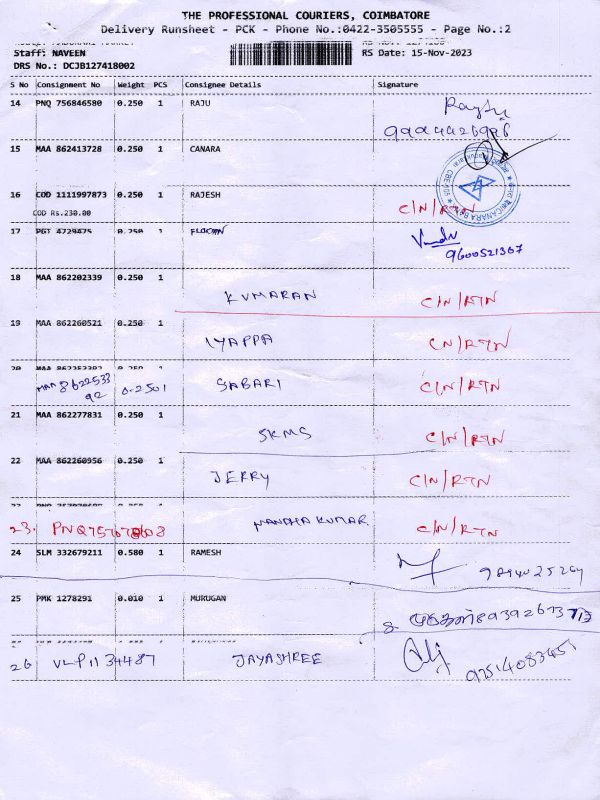 THE PROFESSIONAL COURIERS, COIMBATORE
Delivery Runsheet - PCK - Phone No.:0422-3505555 - Page No.:2
Staff: NAVEEN RS Date: 15-Nov-2023
DRS No.: DCJB127418002
S No Consignment No Weight PCS Consignee Details Signature
14 PNQ 756846580 0.250 1 RAJU
15 MAA 862413728 0.250 1 CANARA
16 COD 1111997873 0.250 1 RAJESH C/N/RTN
COD Rs.230.00
17 PGT 4729475 0.250 1
9600521367
18 MAA 862202339 0.250 1
KUMARAN C/N/RTN
19 MAA 862260521 0.250 1
IYAPPA CN/RTN
20
MAA 8622533 0.2501 SABARI C/N/RTN
92
21 MAA 862277831 0.250 1
SKMS C/N/RTN
22 MAA 862260956 0.250 1
JERRY C/N/RTN
23. NANDHAKUMAR C/N/RTN
24 SLM 332679211 0.580 1 RAMESH
25 PMK 1278291 0.010 1 MURUGAN
26 VLP1134487 JAYASHREE